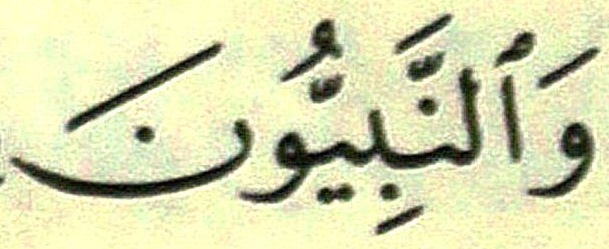 وَٱلنَّبِيُّونَ